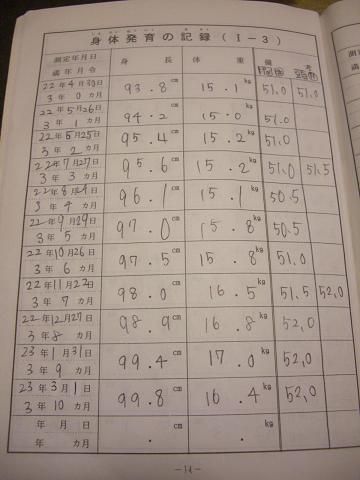 身体発育の記録（Ⅰ－3）
測定年月日
満年月令
身長
体重
備考
胸囲
頭囲
22年4月30日
3年0カ月
93.8cm 15.1kg 51.0 51.0
22年5月26日
3年1カ月
94.2cm 15.0kg 51.0
3年2カ月
95.4cm 15.2kg 51.0
22年7月27日
3年3カ月
95.6cm 15.2kg 51.0 51.5
22年8月24日
3年4カ月
96.1cm 15.1kg 50.5
22年9月29日
3年5カ月
97.0cm 15.8kg 50.5
22年10月26日
3年6カ月
97.5cm 15.8kg 51.0
3年7カ月
98.0cm 16.5kg 51.5 52.0
22年12月27日
3年8カ月
98.9cm 16.8kg 52.0
23年1月31日
3年9カ月
99.4cm 17.0kg 52.0
23年3月1日
3年10カ月
99.8cm 16.4kg 52.0
年月日
年カ月
. .
－14－